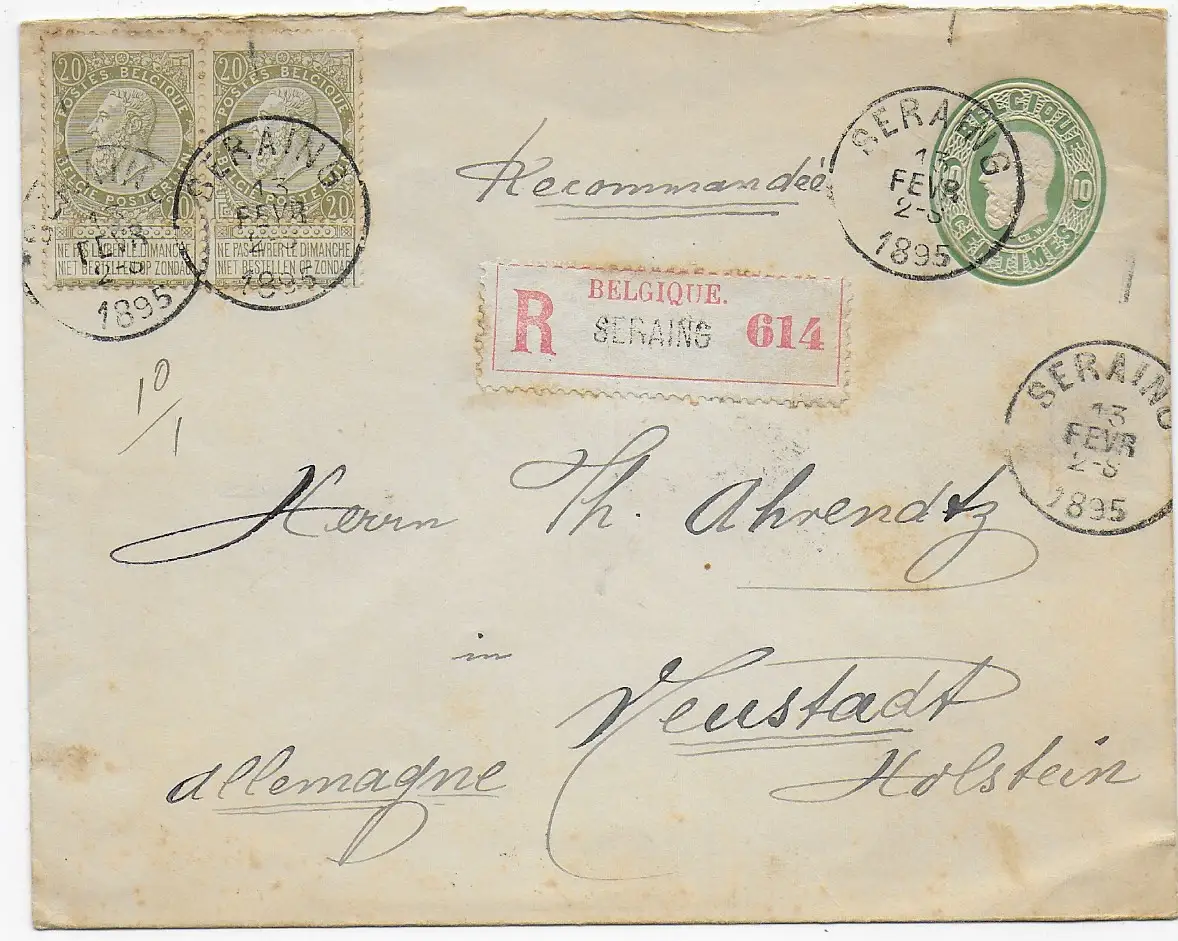 20 20
POSTES BELGIQUE POSTES BELGIQUE
BELGIË POSTERIJEN BELGIË POSTERIJEN
20 20
NE PAS LIVRER LE DIMANCHE NE PAS LIVRER LE DIMANCHE
NIET BESTELLEN OP ZONDAG NIET BESTELLEN OP ZONDAG
13
FEVR
1895
SERAING
13
FEVR
1895
SERAING
13
FEVR
2-S
1895
BELGIQUE
10
CENTIMES
Recommandée
BELGIQUE.
R SERAING 614
SERAING
13
FEVR
2-S
1895
10
/1
Herrn Th. Ahrendtz
in
Neustadt
Holstein
Allemagne